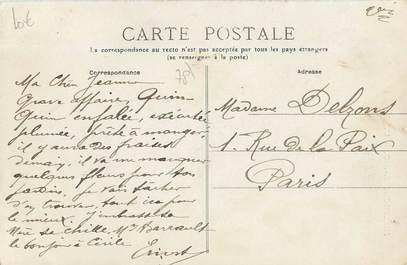 Lot
CARTE POSTALE
La correspondance au recto n'est pas acceptée par tous les pays étrangers
(se renseigner à la poste)
Correspondance
Adresse
78
Ma Chère Jeanne
Grave affaire,
plumée, prête à manger,
il y aura des fraises
demain, il va me manquer
quelques fleurs pour ton
jardin, je vais tâcher
d'en trouver, tout ira pour
le mieux. J'embrasse ta
Mère Mr Barrault
le bonjour à Cécile
Ernest
Madame Delzons
1. Rue de la Paix
Paris